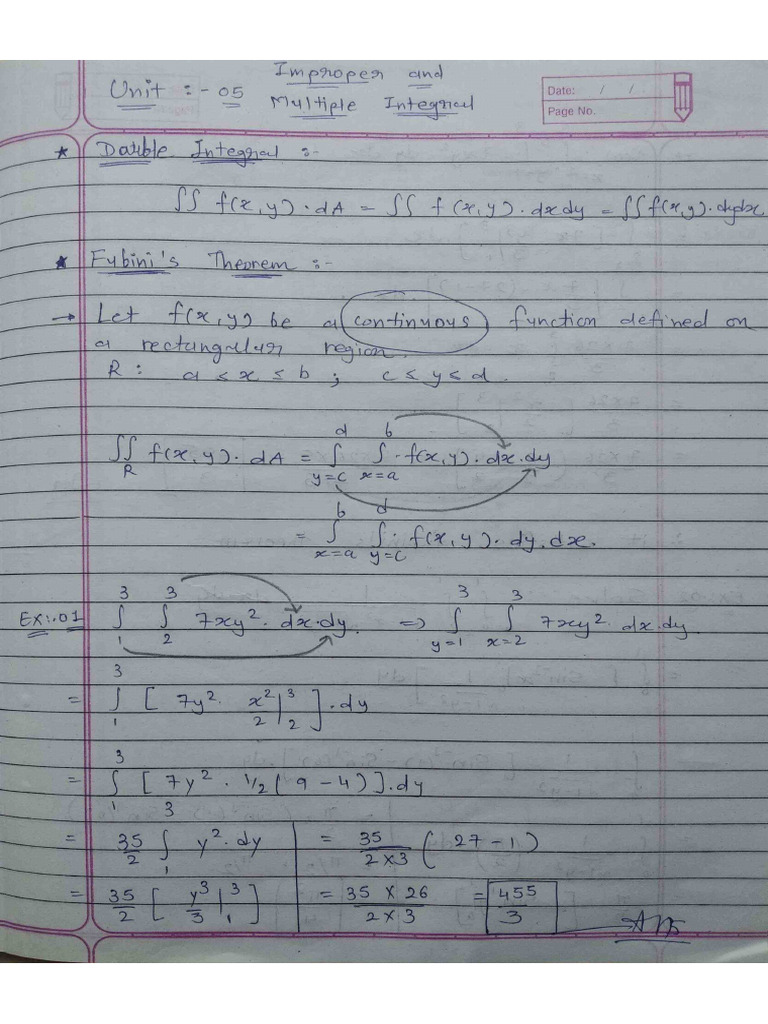 Improper and
Unit :- 05 Multiple Integral
Date: / /
Page No.
* Double Integral :-
∬ f(x,y)·dA = ∬ f(x,y)·dxdy = ∬f(x,y)·dydx
* Fubini's Theorem :-
→ Let f(x,y) be a continuous function defined on
a rectangular region.
R: a ≤ x ≤ b ; c ≤ y ≤ d.
∬_R f(x,y)·dA = ∫_{y=c}^{d} ∫_{x=a}^{b} f(x,y)·dx·dy
= ∫_{x=a}^{b} ∫_{y=c}^{d} f(x,y)·dy.dx.
Ex:-01 ∫_1^3 ∫_2^3 7xy²·dx·dy. ⇒ ∫_{y=1}^{3} ∫_{x=2}^{3} 7xy²·dx·dy.
= ∫_1^3 [ 7y²· x²/2 |_2^3 ]·dy
= ∫_1^3 [ 7y² · 1/2 ( 9 - 4 ) ]·dy
= 35/2 ∫_1^3 y²·dy
= 35/2 [ y³/3 |_1^3 ]
= 35/(2×3) ( 27 - 1 )
= (35 × 26)/(2×3) = 455/3
Ans